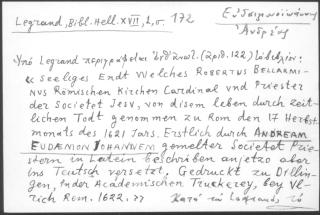 Legrand, Bibl. Hell. XVII, 2, σ. 172
Εὐδαιμονοϊωάννης
Ἀνδρέας
Ὑπὸ Legrand περιγράφεται
« Seeliges Endt Welches ROBERTUS BELLARMI-
NVS Römischen Kirchen Cardinal vnd Priester
der Societet Jesv, von disem leben durch zeit-
lichen Todt genommen zu Rom den 17 Herbst
monats des 1621 Jars. Erstlich durch ANDREAM
EUDÆMON JOHANNEM gemelter Societet Prie-
stern in Latein beschriben anjetzo aber
ins Teutsch versetzt, Gedruckt zu Dillin-
gen, Inder Academischen Truckerey, bey Vl-
rich Rom. 1622. » Κατὰ τὸν Legrand, τὸ